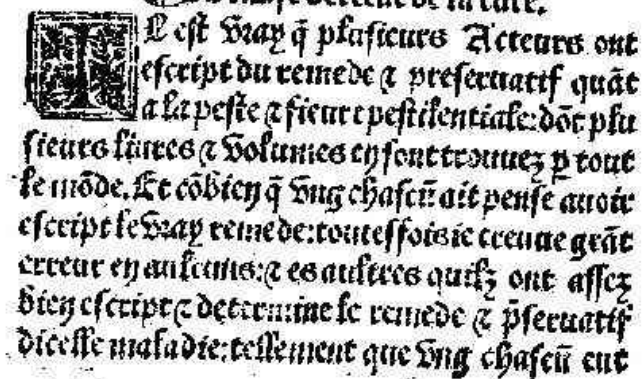 IL est vray q̃ plusieurs Acteurs ont
escript du remede ⁊ preseruatif quãt
a la peste ⁊ fieure pestilentiale: dõt plu
sieurs liures ⁊ volumes en sont trouuez p tout
le mõde. Et cõbien q̃ vng chascũ ait pense auoir
escript le vray remede: toutesfois ie treuue grãt
erreur en aulcuns: ⁊ es aultres quilz ont assez
bien escript ⁊ determine le remede ⁊ p̃seruatif
dicelle maladie: tellement que vng chascũ eut